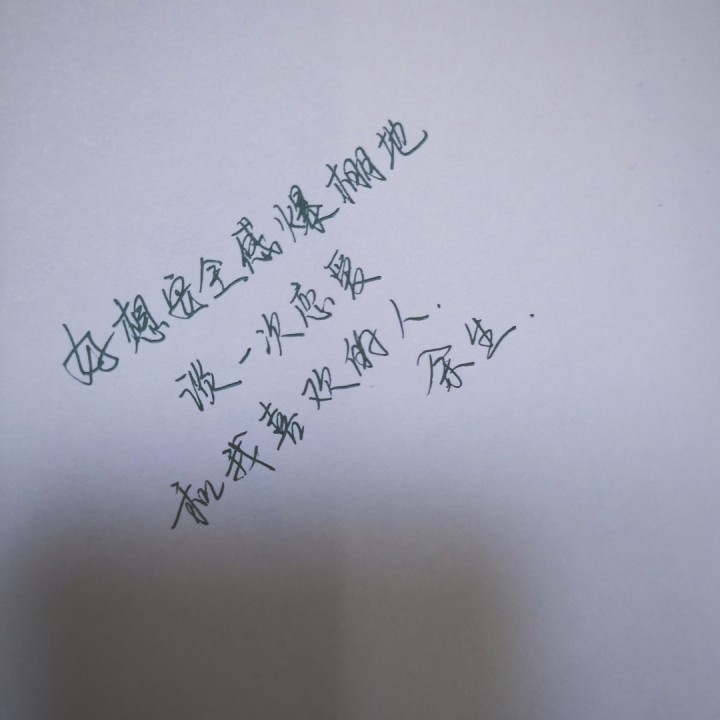 好想安全感爆棚地
谈一次恋爱
和我喜欢的人.
余生.